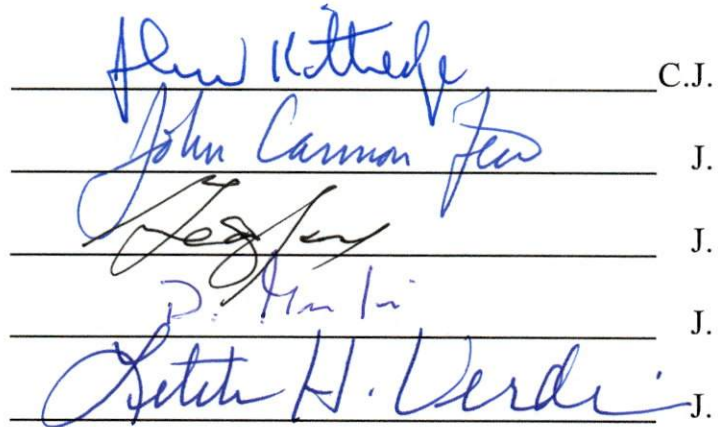 Kittredge C.J.
John Cannon Few J.
J.
D. J.
Letitia H. Verdin J.